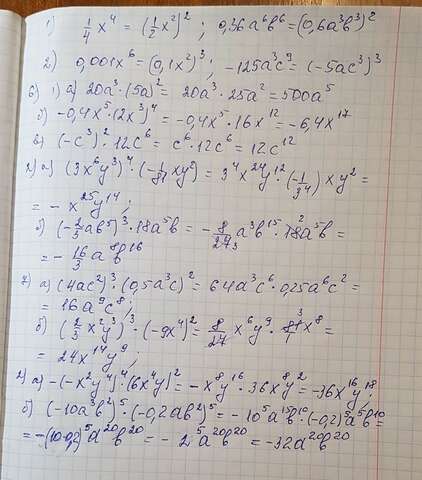 1) 1/4 x⁴ = (1/2 x²)² ; 0,36a⁶b⁶ = (0,6a³b³)²
2) 0,001x⁶ = (0,1x²)³ ; -125a³c⁹ = (-5ac³)³
6) 1) а) 20a³·(5a)² = 20a³·25a² = 500a⁵
б) -0,4x⁵·(2x³)⁴ = -0,4x⁵·16x¹² = -6,4x¹⁷
в) (-c³)²·12c⁶ = c⁶·12c⁶ = 12c¹²
2) а) (3x⁶y³)⁴·(-1/81 xy²) = 3⁴x²⁴y¹²·(-1/3⁴)xy² =
= -x²⁵y¹⁴ ;
б) (-2/3 ab⁵)³·18a⁵b = -8/27₃ a³b¹⁵·18²a⁵b =
= -16/3 a⁸b¹⁶
7. а) (4ac²)³·(0,5a³c)² = 64a³c⁶·0,25a⁶c² =
= 16a⁹c⁸ ;
б) (2/3 x²y³)³·(-9x⁴)² = 8/27 x⁶y⁹·81³x⁸ =
= 24x¹⁴y⁹ ;
2) а) -(-x²y⁴)⁴·(6x⁴y)² = -x⁸y¹⁶·36x⁸y² = -36x¹⁶y¹⁸ ;
б) (-10a³b²)⁵·(-0,2ab²)⁵ = -10⁵a¹⁵b¹⁰·(-0,2)⁵a⁵b¹⁰ =
= -(10·0,2)⁵a²⁰b²⁰ = -2⁵a²⁰b²⁰ = -32a²⁰b²⁰